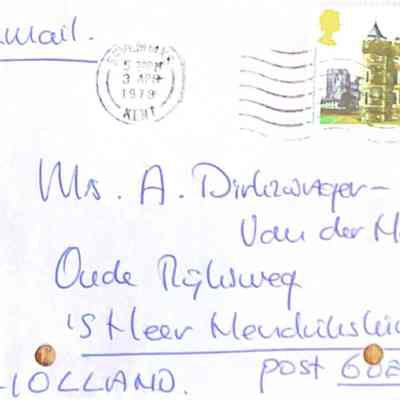 mail.
5 30PM
3 APR
1979
KENT
Mrs. A. Dirkzwager-
Van der M
Oude Rijksweg
'S Heer Hendrikski
post 602
HOLLAND.